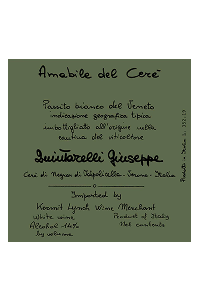 Amabile del Cerè
Passito bianco del Veneto
indicazione geografica tipica
imbottigliato all'origine nella
cantina del viticoltore
Quintarelli Giuseppe
Cerè di Negrar di Valpolicella - Verona - Italia
Imported by
Kermit Lynch Wine Merchant
White wine
Product of Italy
Alcohol 14%
Net contents
by volume
Prodotto in Italia